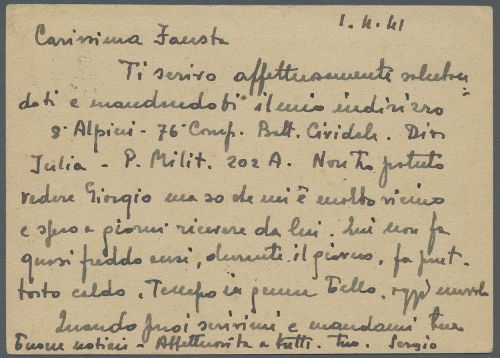 1.4.41
Carissima Fausta
Ti scrivo affettuosamente salutan
doti e mandandoti il mio indirizzo
8º Alpini - 76ª Comp. Batt. Cividale. Div.
Julia - P. Milit. 202 A. Non ho potuto
vedere Giorgio ma so che mi è molto vicino
e spero a giorni ricevere da lui. Qui non fa
quasi freddo anzi, durante il giorno, fa piut-
tosto caldo. Tempo in genere bello. oggi
Quando puoi scrivimi e mandami tue
buone notizie - Affettuosità a tutti. tuo. Sergio